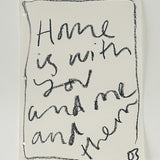 Home
is with
you
and me
and them